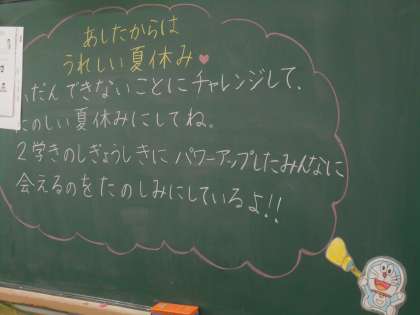 あしたからは
うれしい夏休み♥
いだんできないことにチャレンジして、
たのしい夏休みにしてね。
2学きのしぎょうしきに パワーアップしたみんなに
会えるのをたのしみにしているよ!!